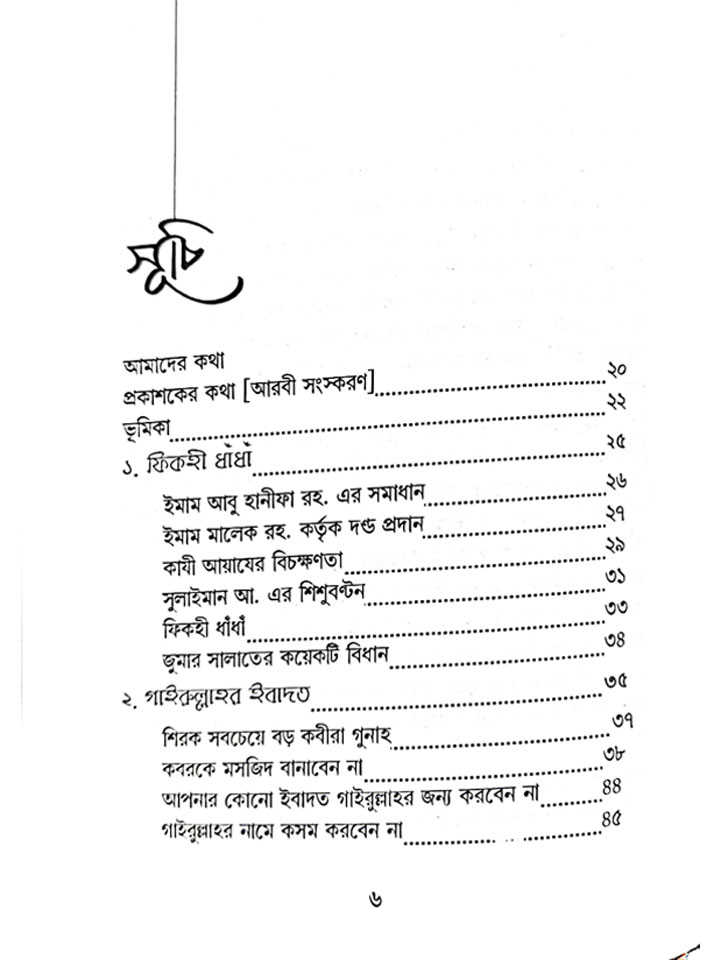 সূচি
আমাদের কথা
প্রকাশকের কথা [আরবী সংস্করণ]........২০
ভূমিকা........২২
১. ফিকহী ধাঁধাঁ........২৫
ইমাম আবু হানীফা রহ. এর সমাধান........২৬
ইমাম মালেক রহ. কর্তৃক দণ্ড প্রদান........২৭
কাযী আয়াযের বিচক্ষণতা........২৯
সুলাইমান আ. এর শিশুবণ্টন........৩১
ফিকহী ধাঁধাঁ........৩৩
জুমার সালাতের কয়েকটি বিধান........৩৪
২. গাইরুল্লাহর ইবাদত........৩৫
শিরক সবচেয়ে বড় কবীরা গুনাহ........৩৭
কবরকে মসজিদ বানাবেন না........৩৮
আপনার কোনো ইবাদত গাইরুল্লাহর জন্য করবেন না........৪৪
গাইরুল্লাহর নামে কসম করবেন না........৪৫
৬